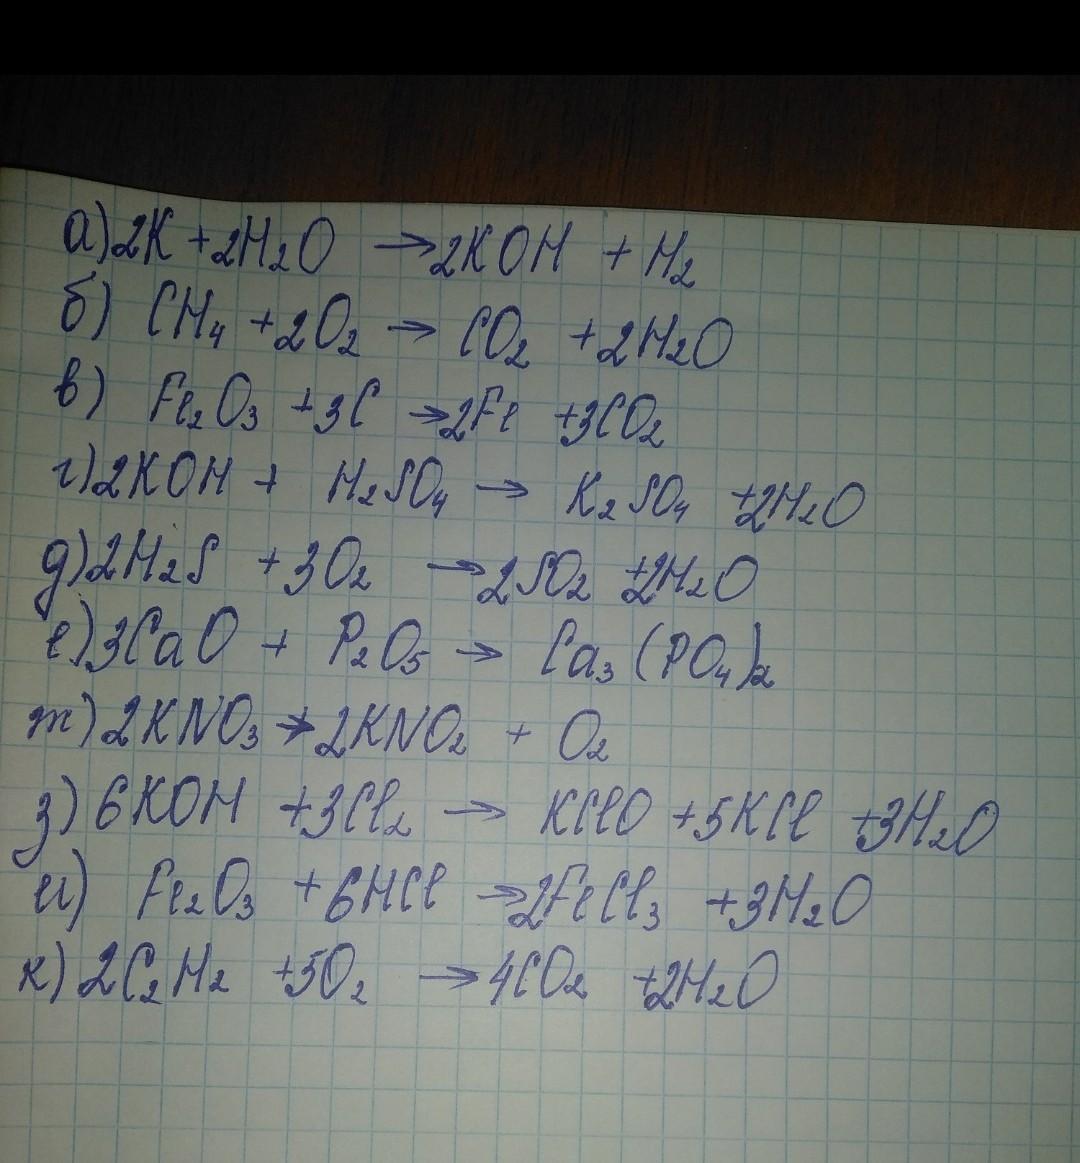 а) 2K + 2H₂O → 2KOH + H₂
б) CH₄ + 2O₂ → CO₂ + 2H₂O
в) Fe₂O₃ + 3C → 2Fe + 3CO₂
г) 2KOH + H₂SO₄ → K₂SO₄ + 2H₂O
д) 2H₂S + 3O₂ → 2SO₂ + 2H₂O
е) 3CaO + P₂O₅ → Ca₃(PO₄)₂
ж) 2KNO₃ → 2KNO₂ + O₂
з) 6KOH + 3Cl₂ → KClO + 5KCl + 3H₂O
и) Fe₂O₃ + 6HCl → 2FeCl₃ + 3H₂O
к) 2C₂H₂ + 5O₂ → 4CO₂ + 2H₂O